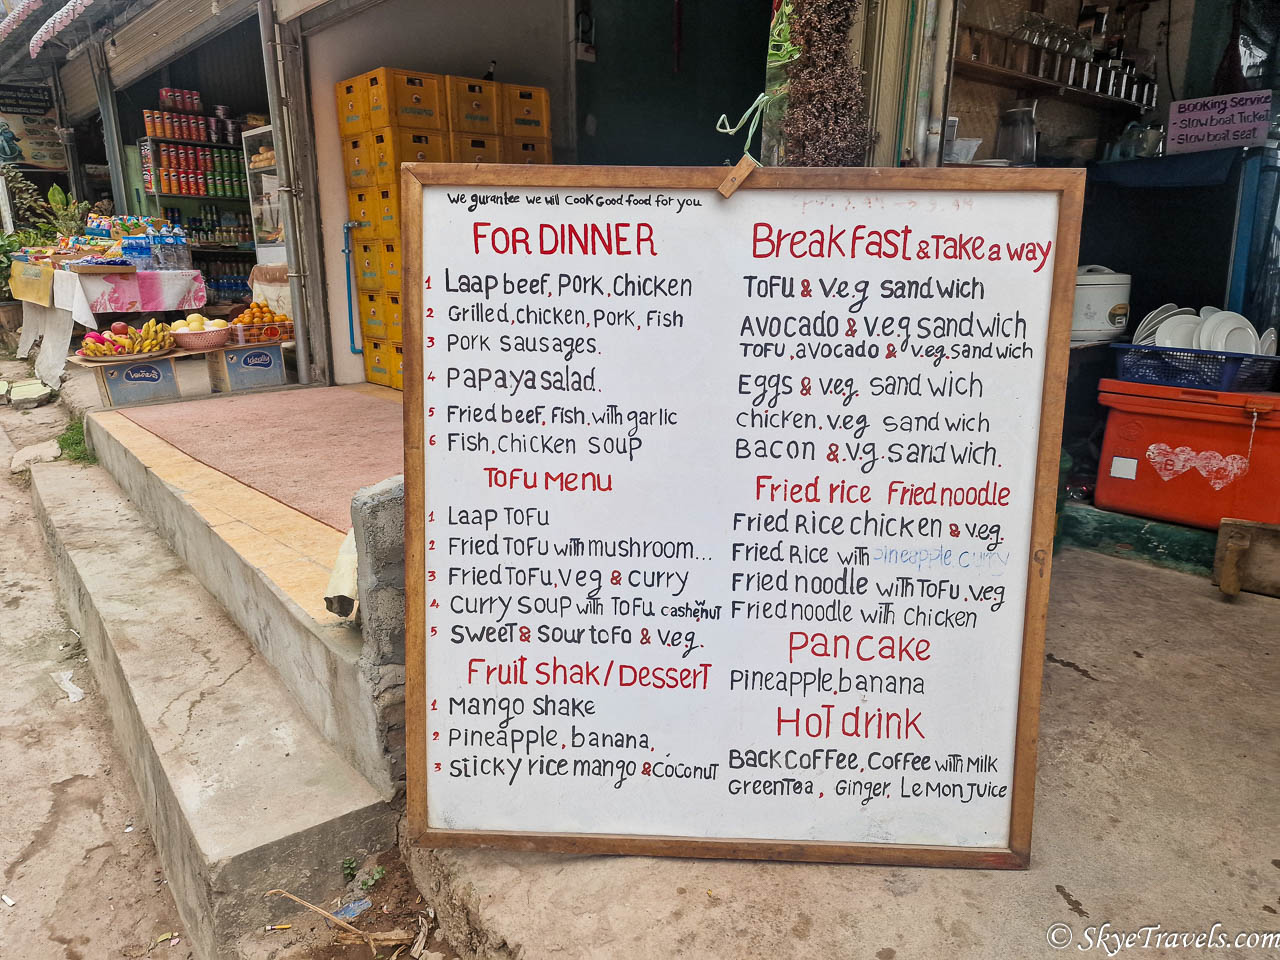 We gurantee we will cook Good food for you
FOR DINNER
1 Laap beef, Pork, Chicken
2 Grilled, chicken, Pork, Fish
3 Pork sausages.
4 Papaya salad.
5 Fried beef, fish, with garlic
6 Fish, Chicken soup
ToFu Menu
1 Laap ToFu
2 Fried ToFu with mushroom...
3 Fried ToFu, veg & curry
4 Curry soup with ToFu cashewnut
5 Sweet & sour tofo & v.e.g.
Fruit shak/Dessert
1 Mango shake
2 Pineapple, banana,
3 Sticky rice mango & Coconut
Breakfast & Take a way
ToFu & v.e.g sandwich
Avocado & v.e.g sandwich
ToFu, avocado & v.eg. sandwich
Eggs & v.e.g. sandwich
chicken. v.eg sandwich
Bacon & .v.g. sandwich.
Fried rice Fried noodle
Fried Rice chicken & v.eg.
Fried Rice with pineapple. curry
Fried noodle with ToFu, v.eg
Fried noodle with Chicken
Pancake
Pineapple, banana
Hot drink
Back Coffee, Coffee with Milk
Green Tea, Ginger, Lemon Juice
Booking Service
- Slow boat Ticket
- Slow boat seat
© SkyeTravels.com